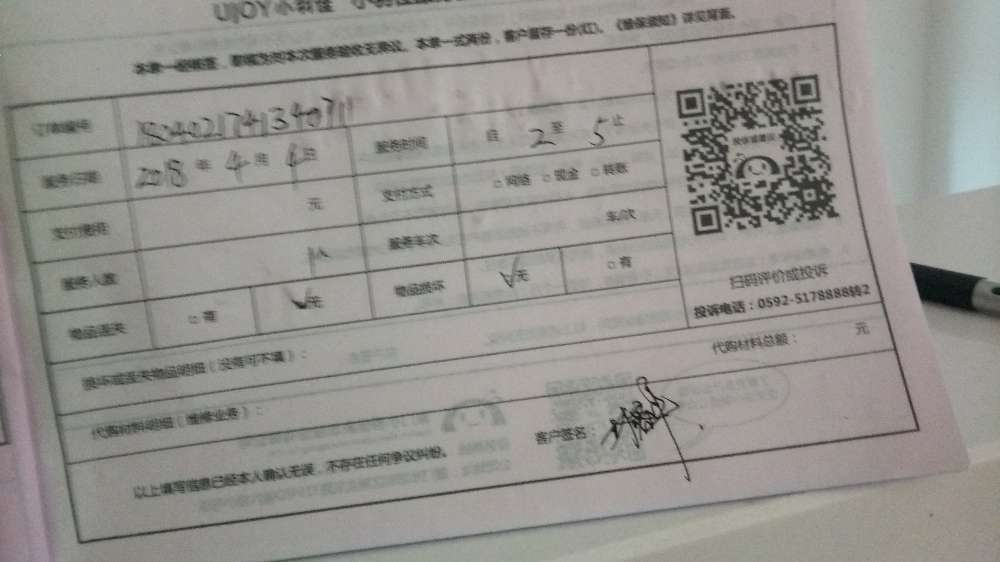 UIJOY小羽佳
本单一经核签，即视为对本次服务验收无异议。本单一式两份，客户留存一份(红)。《维保须知》详见背面。
订单编号 180402174134071
服务日期 2018年4月4日 服务时间 自2至5止
支付费用 元 支付方式 □网络 □现金 □转账
服务人数 人 服务车次 车/次
物品丢失 □有 √无 物品损坏 √无 □有
扫码评价或投诉
投诉电话：0592-5178888转2
损坏或丢失物品明细（没有可不填）：
代购材料明细（维修业务）： 代购材料总额： 元
以上填写信息已经本人确认无误，不存在任何争议纠纷。 客户签名：